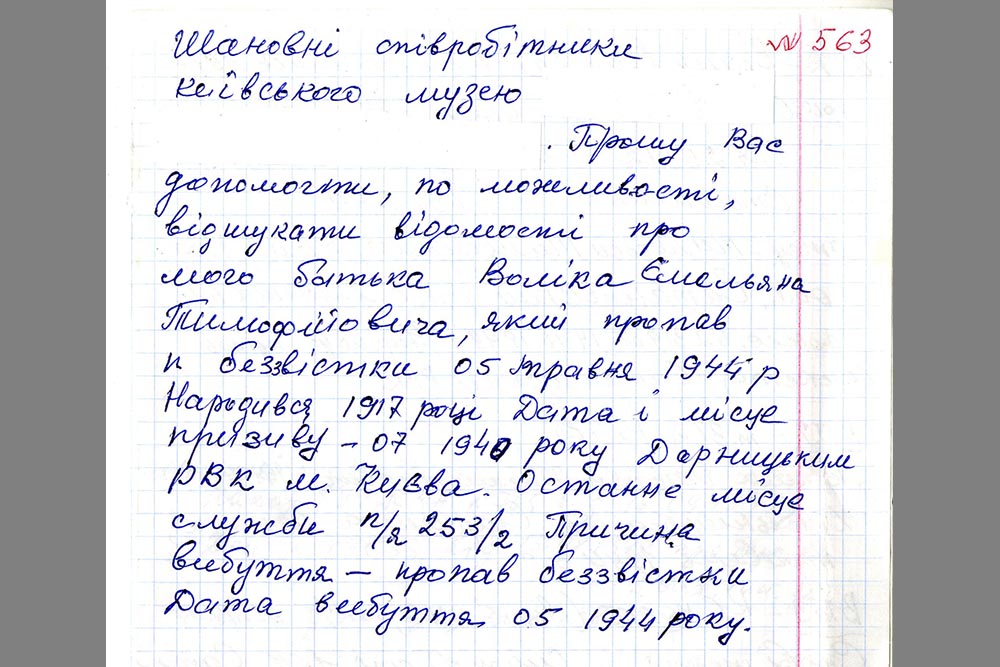 Шановні співробітники № 563
київського музею
. Прошу Вас
допомогти, по можливості,
відшукати відомості про
мого батька Воліка Ємельяна
Тимофійовича, який пропав
п беззвістки 05 травня 1944 р
Народився 1917 році Дата і місце
призиву – 07 1940 року Дарницьким
РВК м. Києва. Останнє місце
служби п/я 253/2 Причина
вибуття – пропав беззвістки
Дата вибуття 05 1944 року.